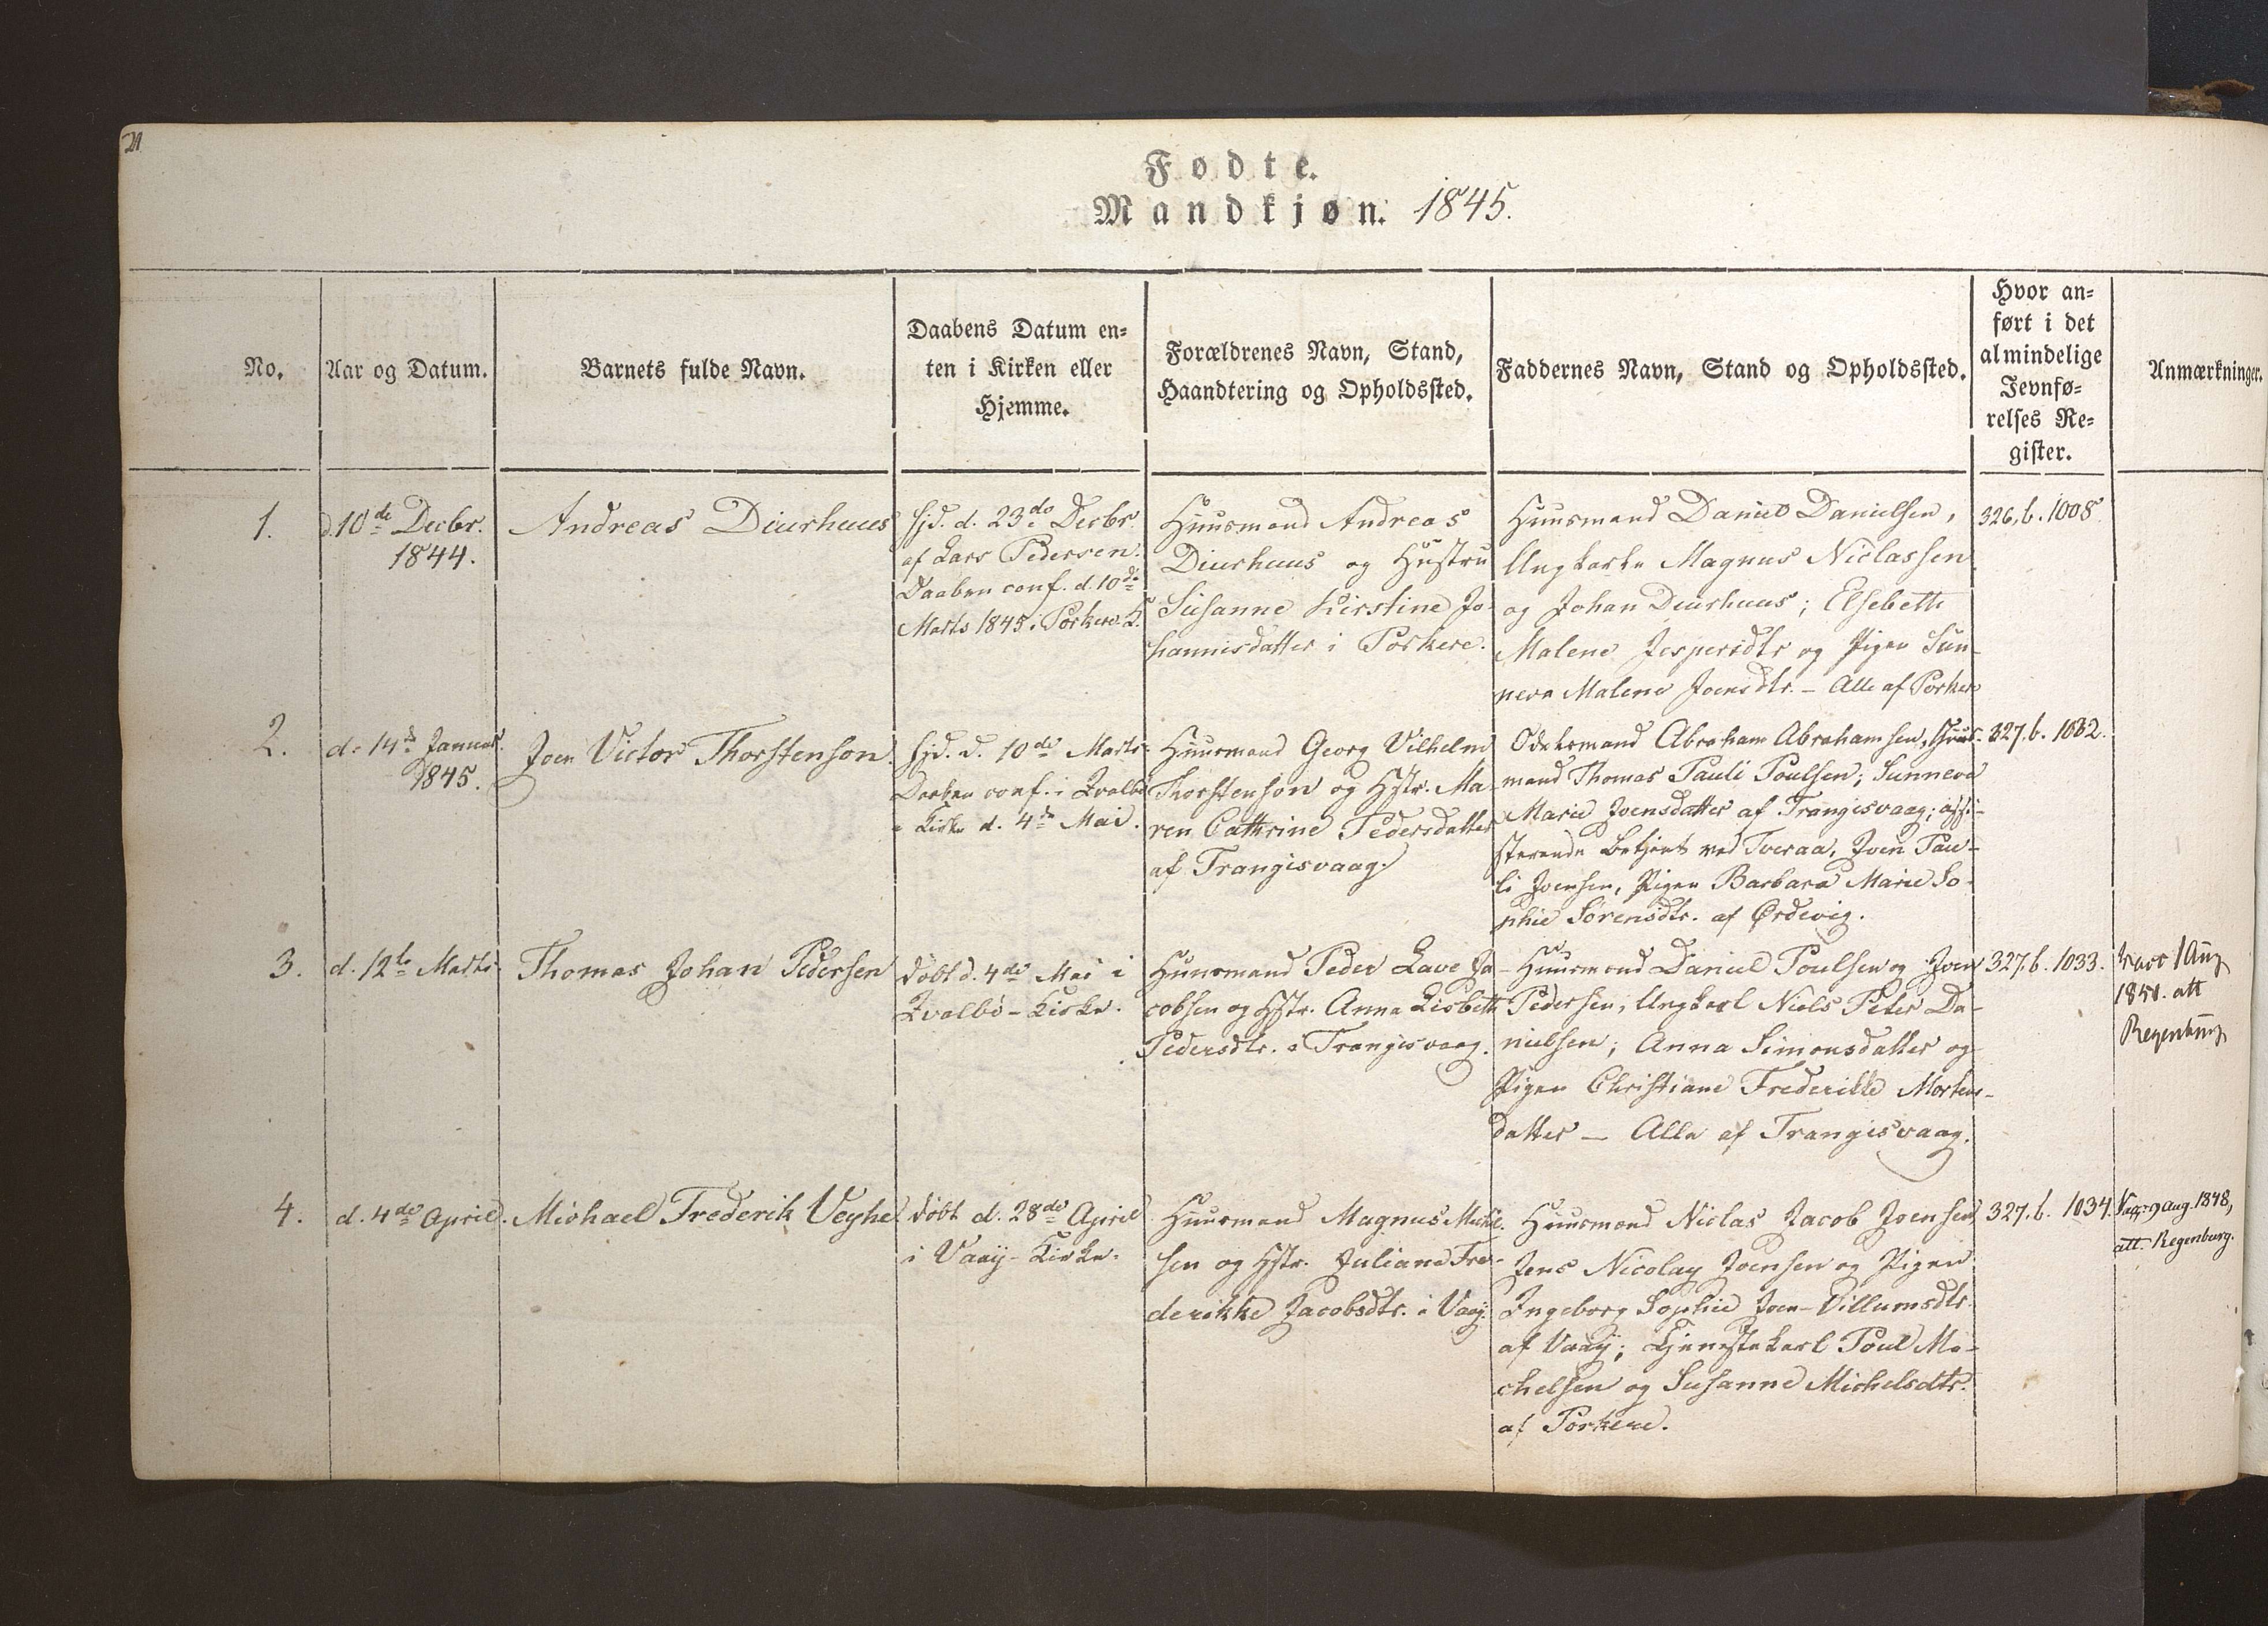 21
Fødte.
Mandkjøn. 1845.
No.
Aar og Datum.
Barnets fulde Navn.
Daabens Datum en-
ten i Kirken eller
Hjemme.
Forældrenes Navn, Stand,
Haandtering og Opholdssted.
Faddernes Navn, Stand og Opholdssted.
Hvor an-
ført i det
almindelige
Jevnfø-
relses Re-
gister.
Anmærkninger.
1.
d. 10de Decbr.
1844.
Andreas Diurhuus
Hjd. d. 23de Decbr.
af Lars Pedersen.
Daaben conf. d. 10de
Marts 1845 i Porkere K.
Huusmand Andreas
Diurhuus og Hustru
Susanne Kirstine Jo-
hannisdatter i Porkere.
Huusmand Daniel Danielsen,
Ungkarle Magnus Niclassen
og Johan Diurhuus; Elsebeth
Malene Jespersdtr og Pigen Sun-
neva Malene Joensdtr. - Alle af Porkere
326. b. 1008
2.
d. 14de Januar
1845.
Joen Victor Thorstenson.
Hjd. d. 10de Marts
Daaben conf. i Qvalbø
Kirke d. 4de Mai.
Huusmand Georg Vilhelm
Thorstenson og Hstr. Ma-
ren Cathrine Pedersdatter
af Trangisvaag.
Odelsmand Abraham Abrahamsen, Huus-
mand Thomas Pauli Poulsen; Sunneva
Marie Joensdatter af Trangisvaag; assi-
sterende Betjent ved Tveraa, Joen Pau-
li Joensen, Pigen Barbara Marie So-
phie Sørensdtr. af Ørdevig.
327. b. 1032.
3.
d. 12te Marts
Thomas Johan Pedersen
døbt d. 4de Mai i
Qvalbø-Kirke.
Huusmand Peder Lave Ja-
cobsen og Hstr. Anna Lisbeth
Pedersdtr. i Trangisvaag.
Huusmand Daniel Poulsen og Joen
Pedersen, Ungkarl Niels Peter Da-
nielsen; Anna Simonsdatter og
Pigen Christiane Frederikke Morten-
datter - Alle af Trangisvaag.
327. b. 1033.
Vacc 1 Aug
att
Regenburg
4.
d. 4de April.
Michael Frederik Veyhe
døbt d. 28de April
i Vaaij-Kirke.
Huusmand Magnus Michel-
sen og Hstr. Juliane Fre-
derikke Jacobsdtr. i Vaaij.
Huusmand Niclas Jacob Joensen,
Jens Nicolay Joensen og Pigen
Ingeborg Sophie Joen-Villumsdtr.
af Vaaij; Tjenestekarl Poul Mi-
chelsen og Susanne Michelsdtr.
af Porkere.
327. b. 1034.
Vacc. 9 Aug. 1848,
att. Regenburg.